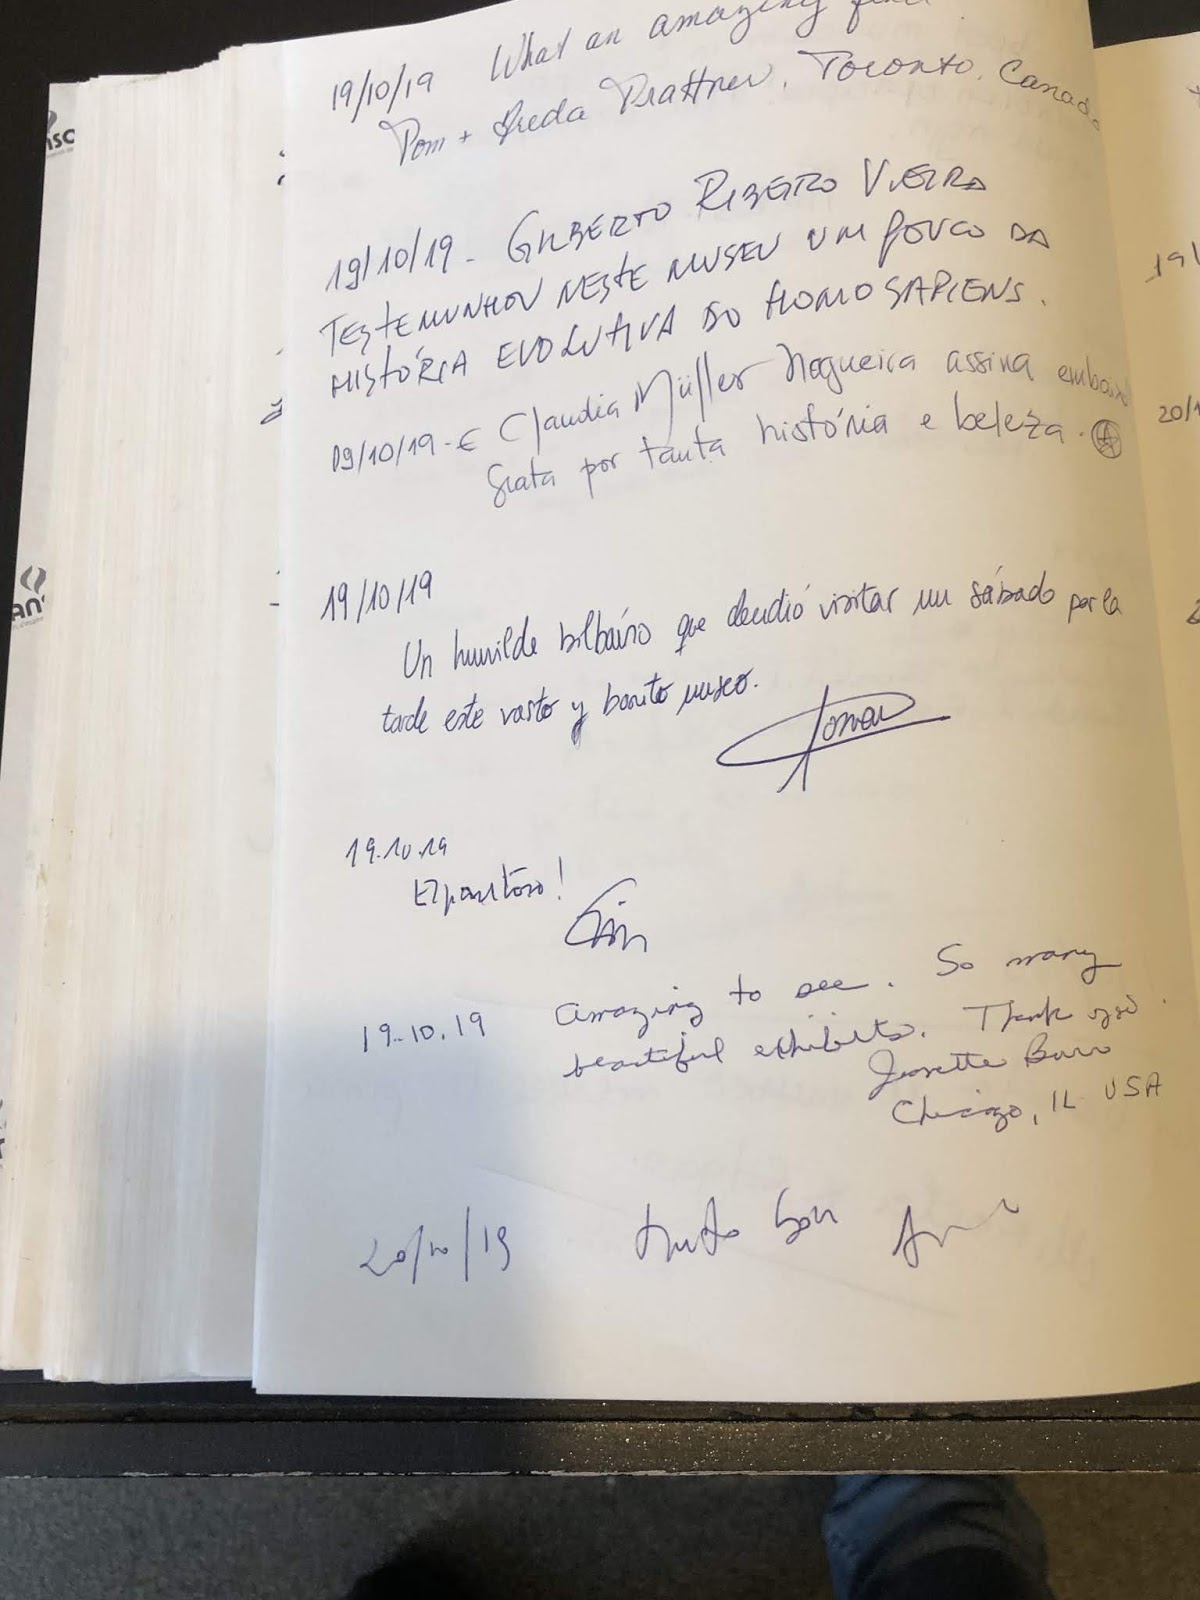 19/10/19 What an amazing
Tom + Freda Toronto, Canada
19/10/19 - GILBERTO RIBEIRO VIEIRA
TESTEMUNHOU NESTE MUSEU UM POUCO DA
HISTÓRIA EVOLUTIVA DO HOMO SAPIENS.
09/10/19 - E Claudia Müller Nogueira assina embaixo
Grata por tanta história e beleza.
19/10/19
Un humilde bilbaíno que decidió visitar un sábado por la
tarde este vasto y bonito museo.
19.10.19
19.10.19 Amazing to see. So many
beautiful exhibits. Thank you.
Chicago, IL USA
20/10/19
19/
20/1